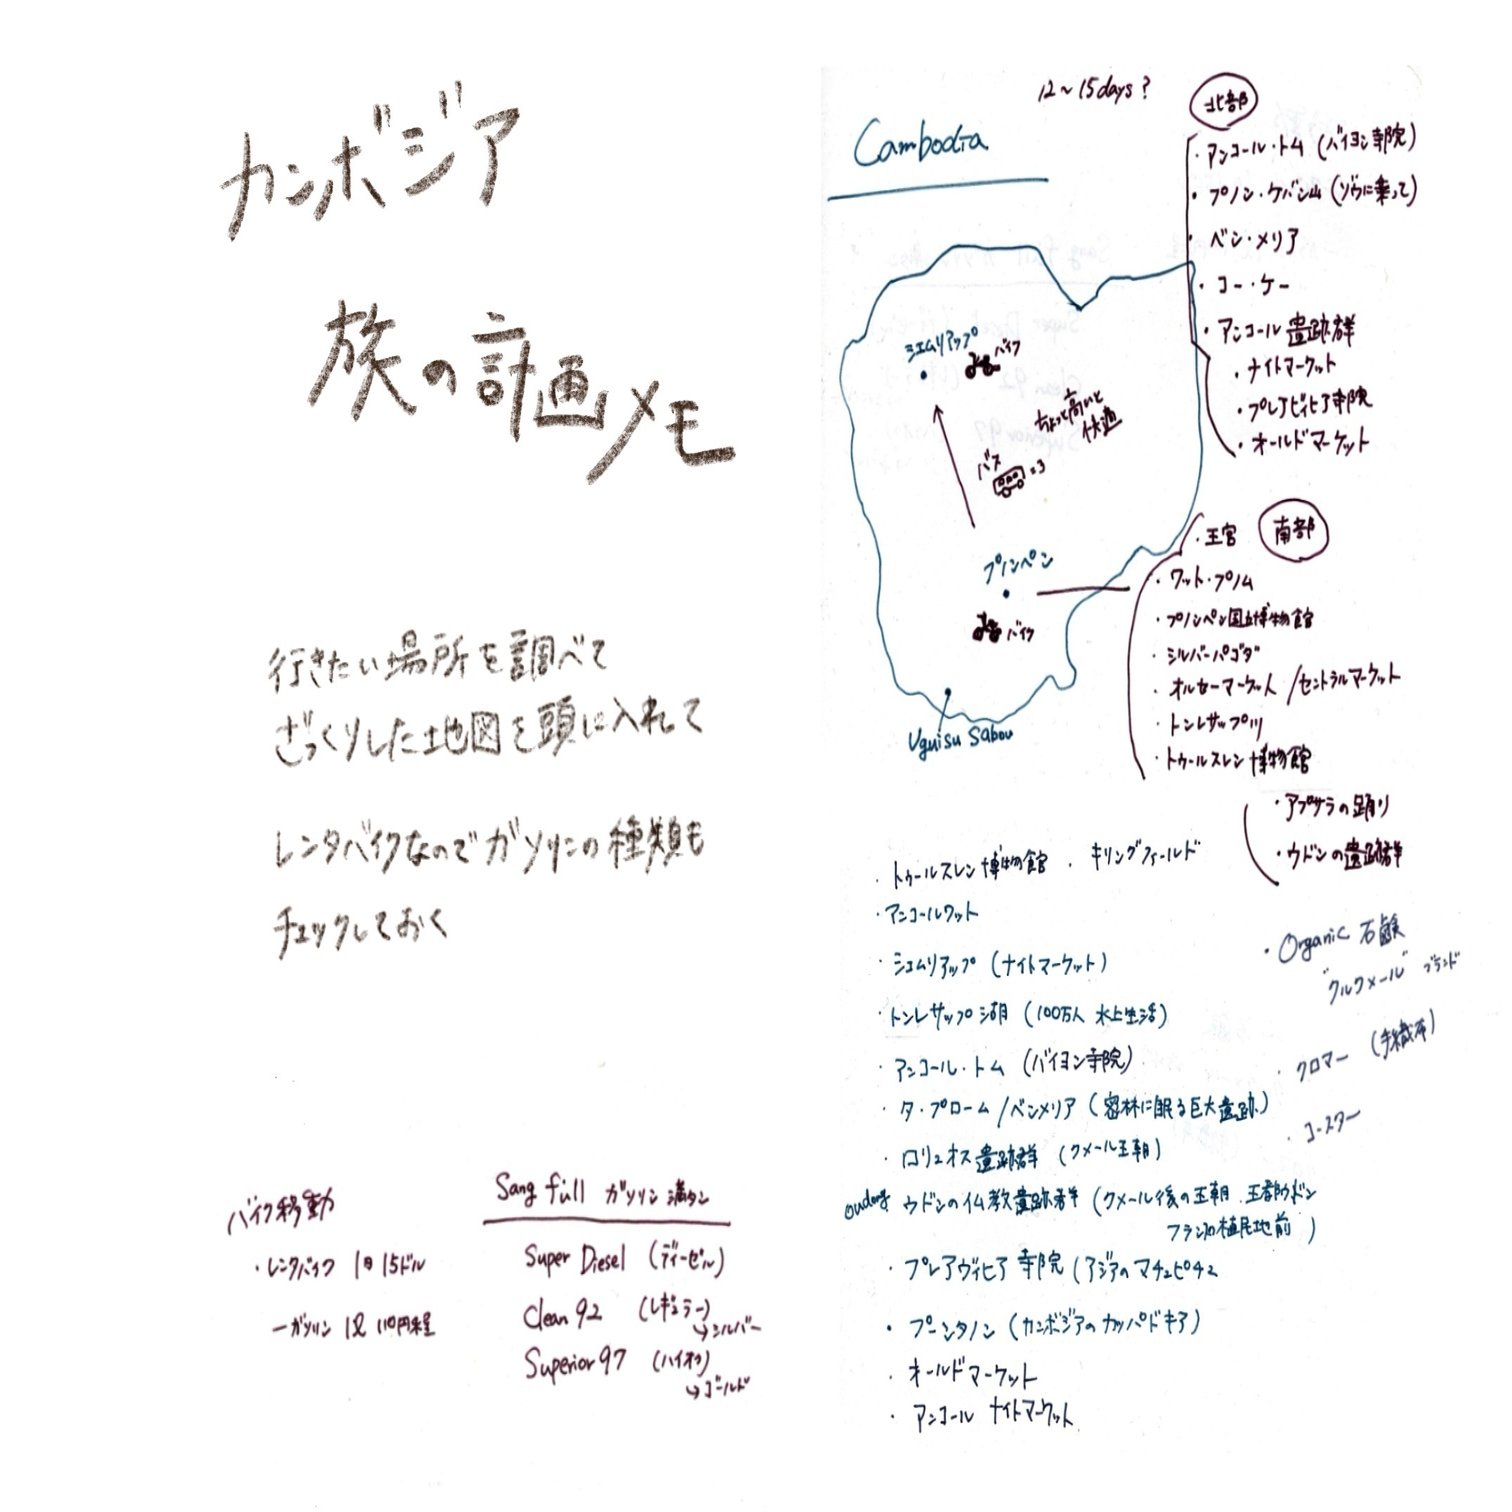 カンボジア
旅の計画メモ
行きたい場所を調べて
ざっくりした地図を頭に入れて
レンタバイクなのでガソリンの種類も
チェックしておく
バイク移動
・レンタバイク 1日 15ドル
ーガソリン 1ℓ 110円程
Sang full ガソリン満タン
Super Diesel (ディーゼル)
Clean 92 (レギュラー)
↳シルバー
Superior 97 (ハイオク)
↳ゴールド
12~15days?
Cambodia
シエムリアップ
バイク
ちょっと高いと
快適
バス
プノンペン
バイク
Uguisu Sabou
北部
・アンコール・トム (バイヨン寺院)
・プノン・ケバン山 (ゾウに乗って)
・ベン・メリア
・コー・ケー
・アンコール遺跡群
・ナイトマーケット
・プレアビヒア寺院
・オールドマーケット
南部
・王宮
・ワット・プノム
・プノンペン国立博物館
・シルバーパゴダ
・オルセーマーケット /セントラルマーケット
・トンレサップ川
・トゥールスレン博物館
・アプサラの踊り
・ウドンの遺跡群
・トゥールスレン博物館 ・キリングフィールド
・アンコールワット
・シエムリアップ (ナイトマーケット)
・トンレサップ湖 (100万人 水上生活)
・アンコール・トム (バイヨン寺院)
・タ・プローム/ベンメリア (密林に眠る巨大遺跡)
・ロリュオス遺跡群 (クメール王朝)
oudong ウドンの仏教遺跡群 (クメール後の王朝 王都ウドン
フランスの植民地前)
・プレアヴィヒア寺院 (アジアのマチュピチュ
・プーンタノン (カンボジアのカッパドキア)
・オールドマーケット
・アンコール ナイトマーケット
・Organic 石鹸
"クルクメール" ブランド
・クロマー (手織布)
・コースター